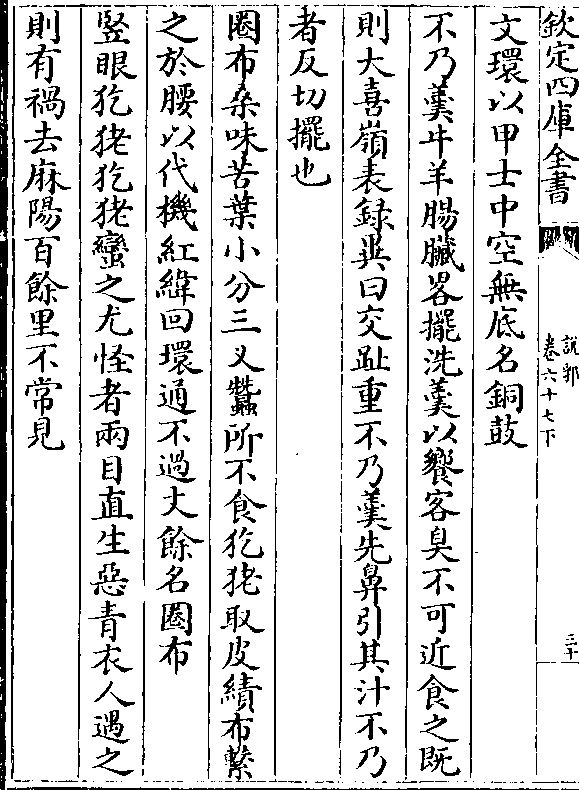 欽定四庫全書
說郛
卷六十七下
三十
文環以甲士中空無底名銅鼓
不乃羹牛羊腸臟畧擺洗羹以饗客臭不可近食之既
則大喜嶺表録異曰交趾重不乃羹先鼻引其汁不乃
者反切擺也
圈布桑味苦葉小分三叉蠶所不食犵狫取皮績布繫
之於腰以代機紅緯回環通不過丈餘名圈布
竪眼犵狫犵狫蠻之尤怪者兩目直生惡青衣人遇之
則有禍去麻陽百餘里不常見